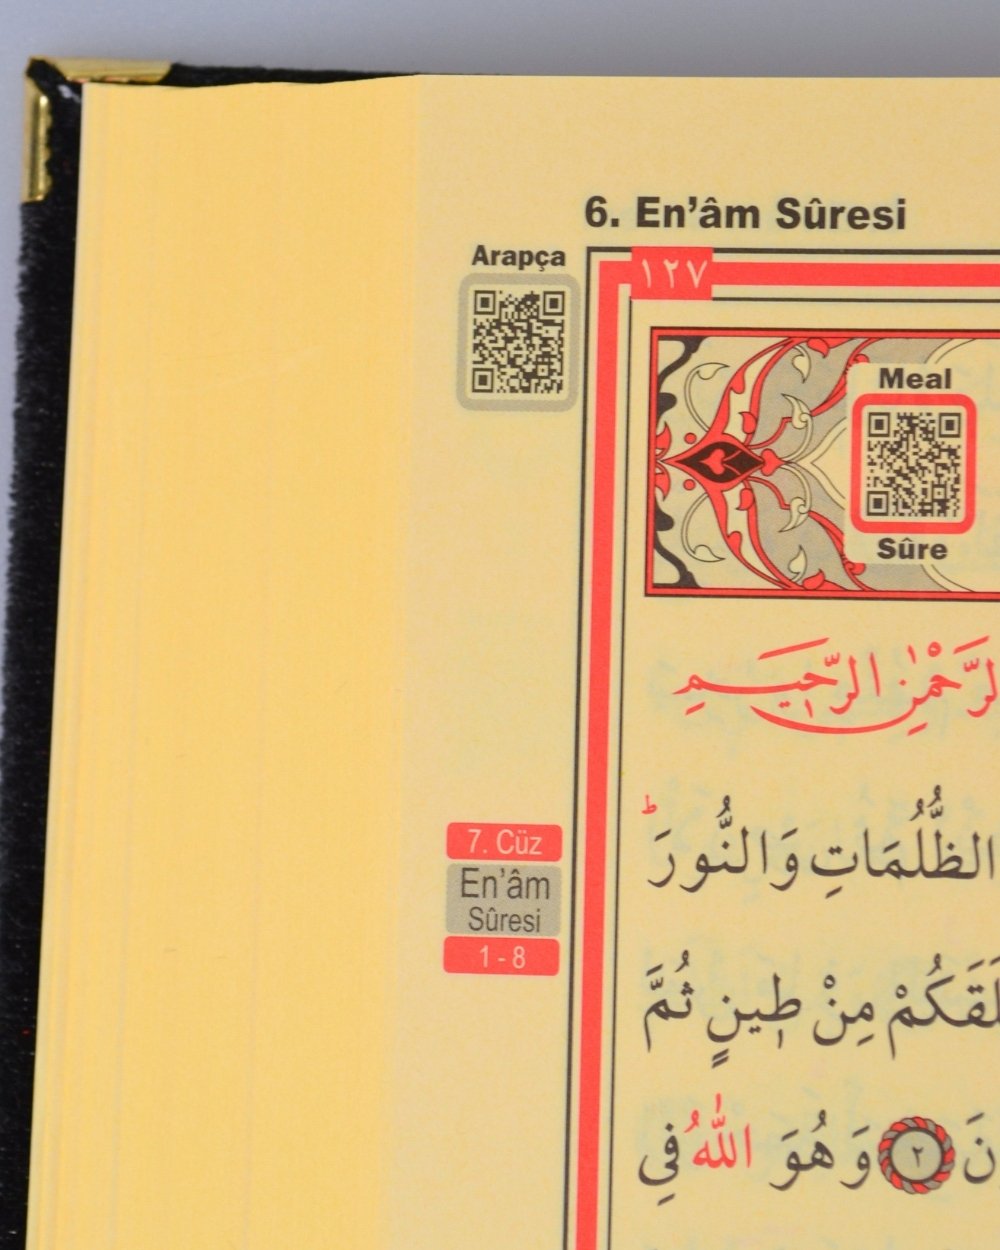 6. En’âm Sûresi
Arapça
١٢٧
Meal
Sûre
الرَّحْمٰنِ الرَّحٖيمِ
الظُّلُمَاتِ وَالنُّورَ ط
7. Cüz
En’âm
Sûresi
1 - 8
خَلَقَكُمْ مِنْ طٖينٍ ثُمَّ
وَهُوَ اللّٰهُ فِي ٢